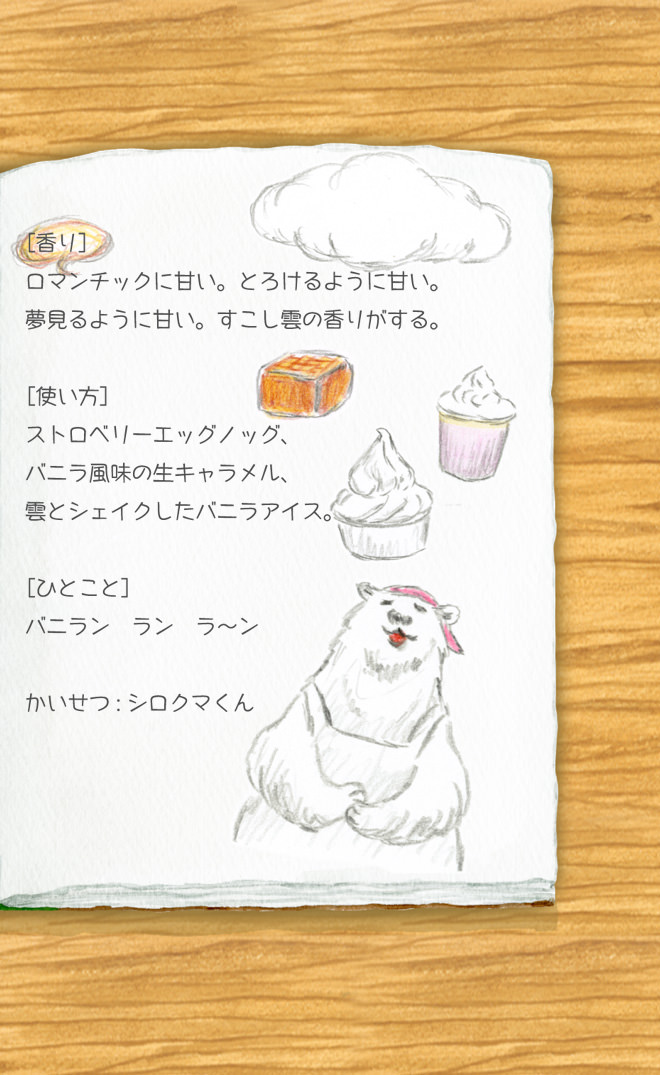 [香り]
ロマンチックに甘い。とろけるように甘い。
夢見るように甘い。すこし雲の香りがする。
[使い方]
ストロベリーエッグノッグ、
バニラ風味の生キャラメル、
雲とシェイクしたバニラアイス。
[ひとこと]
バニラン　ラン　ラ〜ン
かいせつ：シロクマくん